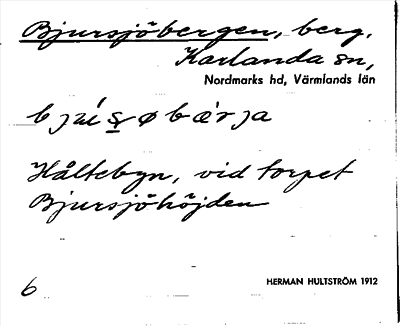 Bjursjöbergen, berg,
Karlanda sn,
Nordmarks hd, Värmlands län
Håltebyn, vid torpet
Bjursjöhöjden
6
HERMAN HULTSTRÖM 1912